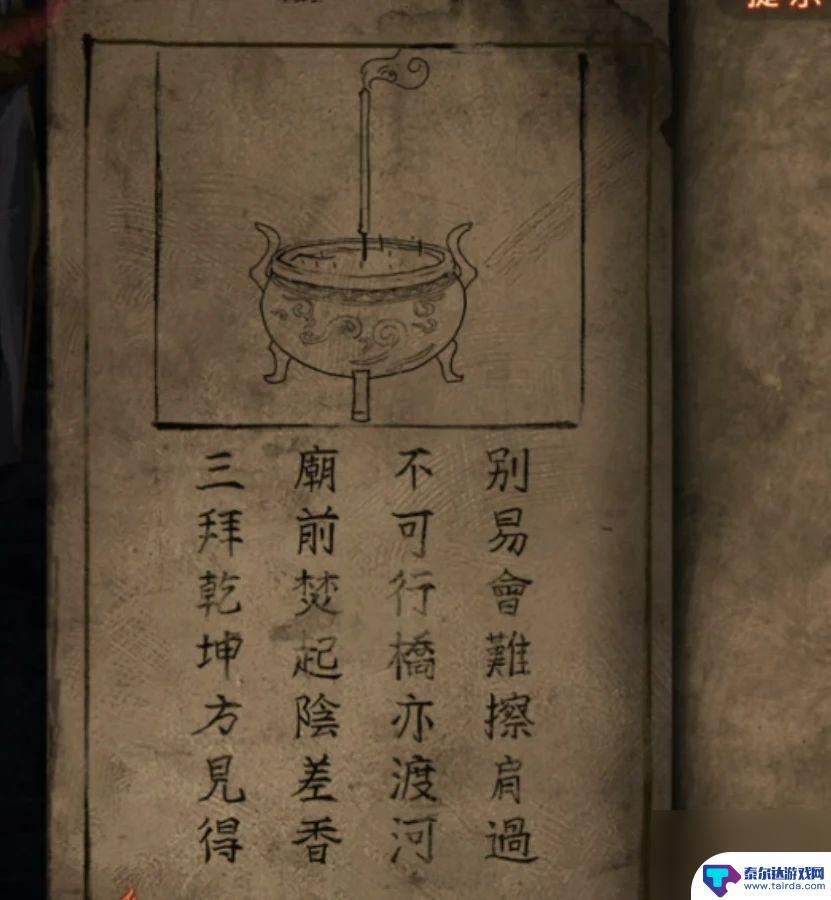 提示
别易會難擦肩過
不可行橋亦渡河
廟前焚起陰差香
三拜乾坤方見得
泰尔达游戏网
www.tairda.com